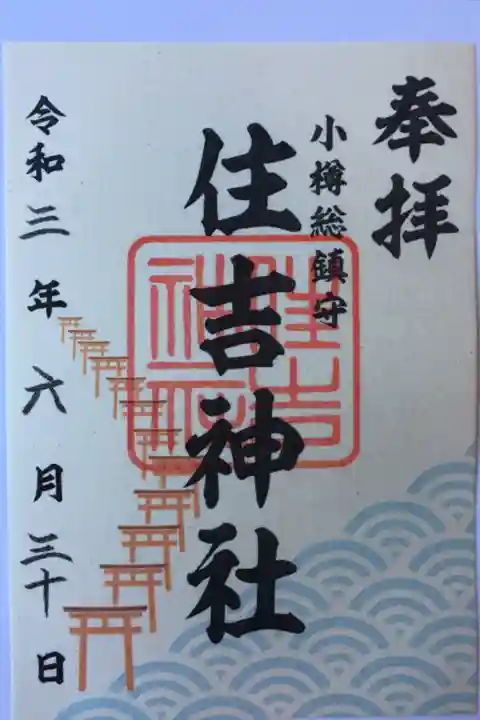 奉拝
小樽総鎮守
住吉神社
住吉神社
令和三年六月三十日